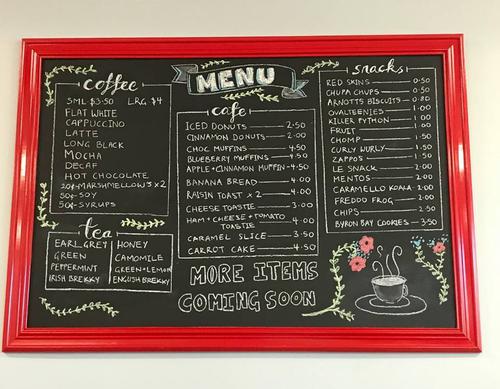 MENU
coffee
SML $3.50 LRG $4
FLAT WHITE
CAPPUCCINO
LATTE
LONG BLACK
MOCHA
DECAF
HOT CHOCOLATE
20¢ MARSHMELLOW'S x 2
50¢ SOY
50¢ SYRUPS
tea
EARL GREY
GREEN
PEPPERMINT
IRISH BREKKY
HONEY
CAMOMILE
GREEN+LEMON
ENGLISH BREKKY
cafe
ICED DONUTS 2.50
CINNAMON DONUTS 2.00
CHOC MUFFINS 4.50
BLUEBERRY MUFFINS 4.50
APPLE+CINNAMON MUFFIN 4.50
BANANA BREAD 4.00
RAISIN TOAST x 2 4.00
CHEESE TOASTIE 3.00
HAM + CHEESE + TOMATO
TOASTIE 4.00
CARAMEL SLICE 3.50
CARROT CAKE 4.50
MORE ITEMS
COMING SOON
snacks
RED SKINS 0.50
CHUPA CHUPS 0.50
ARNOTTS BISCUITS 0.80
OVALTEENIES 1.00
KILLER PYTHON 1.00
FRUIT 1.00
CHOMP 1.50
CURLY WURLY 1.50
ZAPPOS 1.50
LE SNACK 2.00
MENTOS 2.00
CARAMELLO KOALA 2.00
FREDDO FROG 2.00
CHIPS 2.50
BYRON BAY COOKIES 3.50